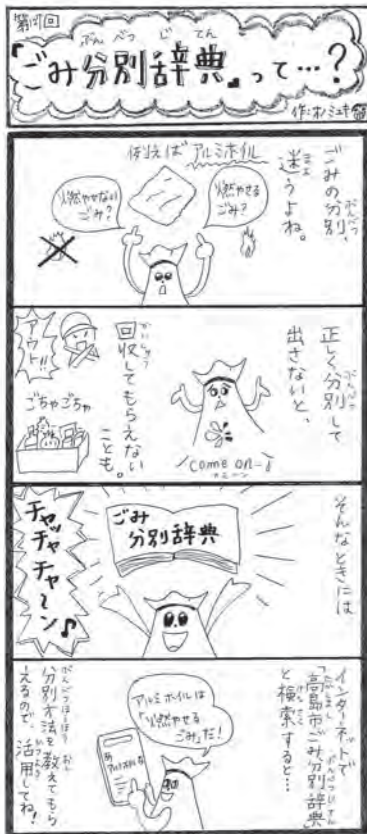 「ごみ分別辞典」って…?
ぶんべつじてん
ごみの分別、
ぶんべつ
迷うよね。
まよ
例えばアルミホイル
燃やせる
ごみ?
燃やせない
ごみ?
正しく分別して
ぶんべつ
出さないと、
回収してもらえない
かいしゅう
ことも。
アウト!!
ごちゃごちゃ
come on~
カモーン
そんなときには
ごみ
分別辞典
チャッチャチャ~ン♪
インターネットで
「高島市ごみ分別辞典」
と検索すると…
アルミホイルは
「燃やせる
ごみ」だ!
分別方法を教えてもら
えるので、活用してね!